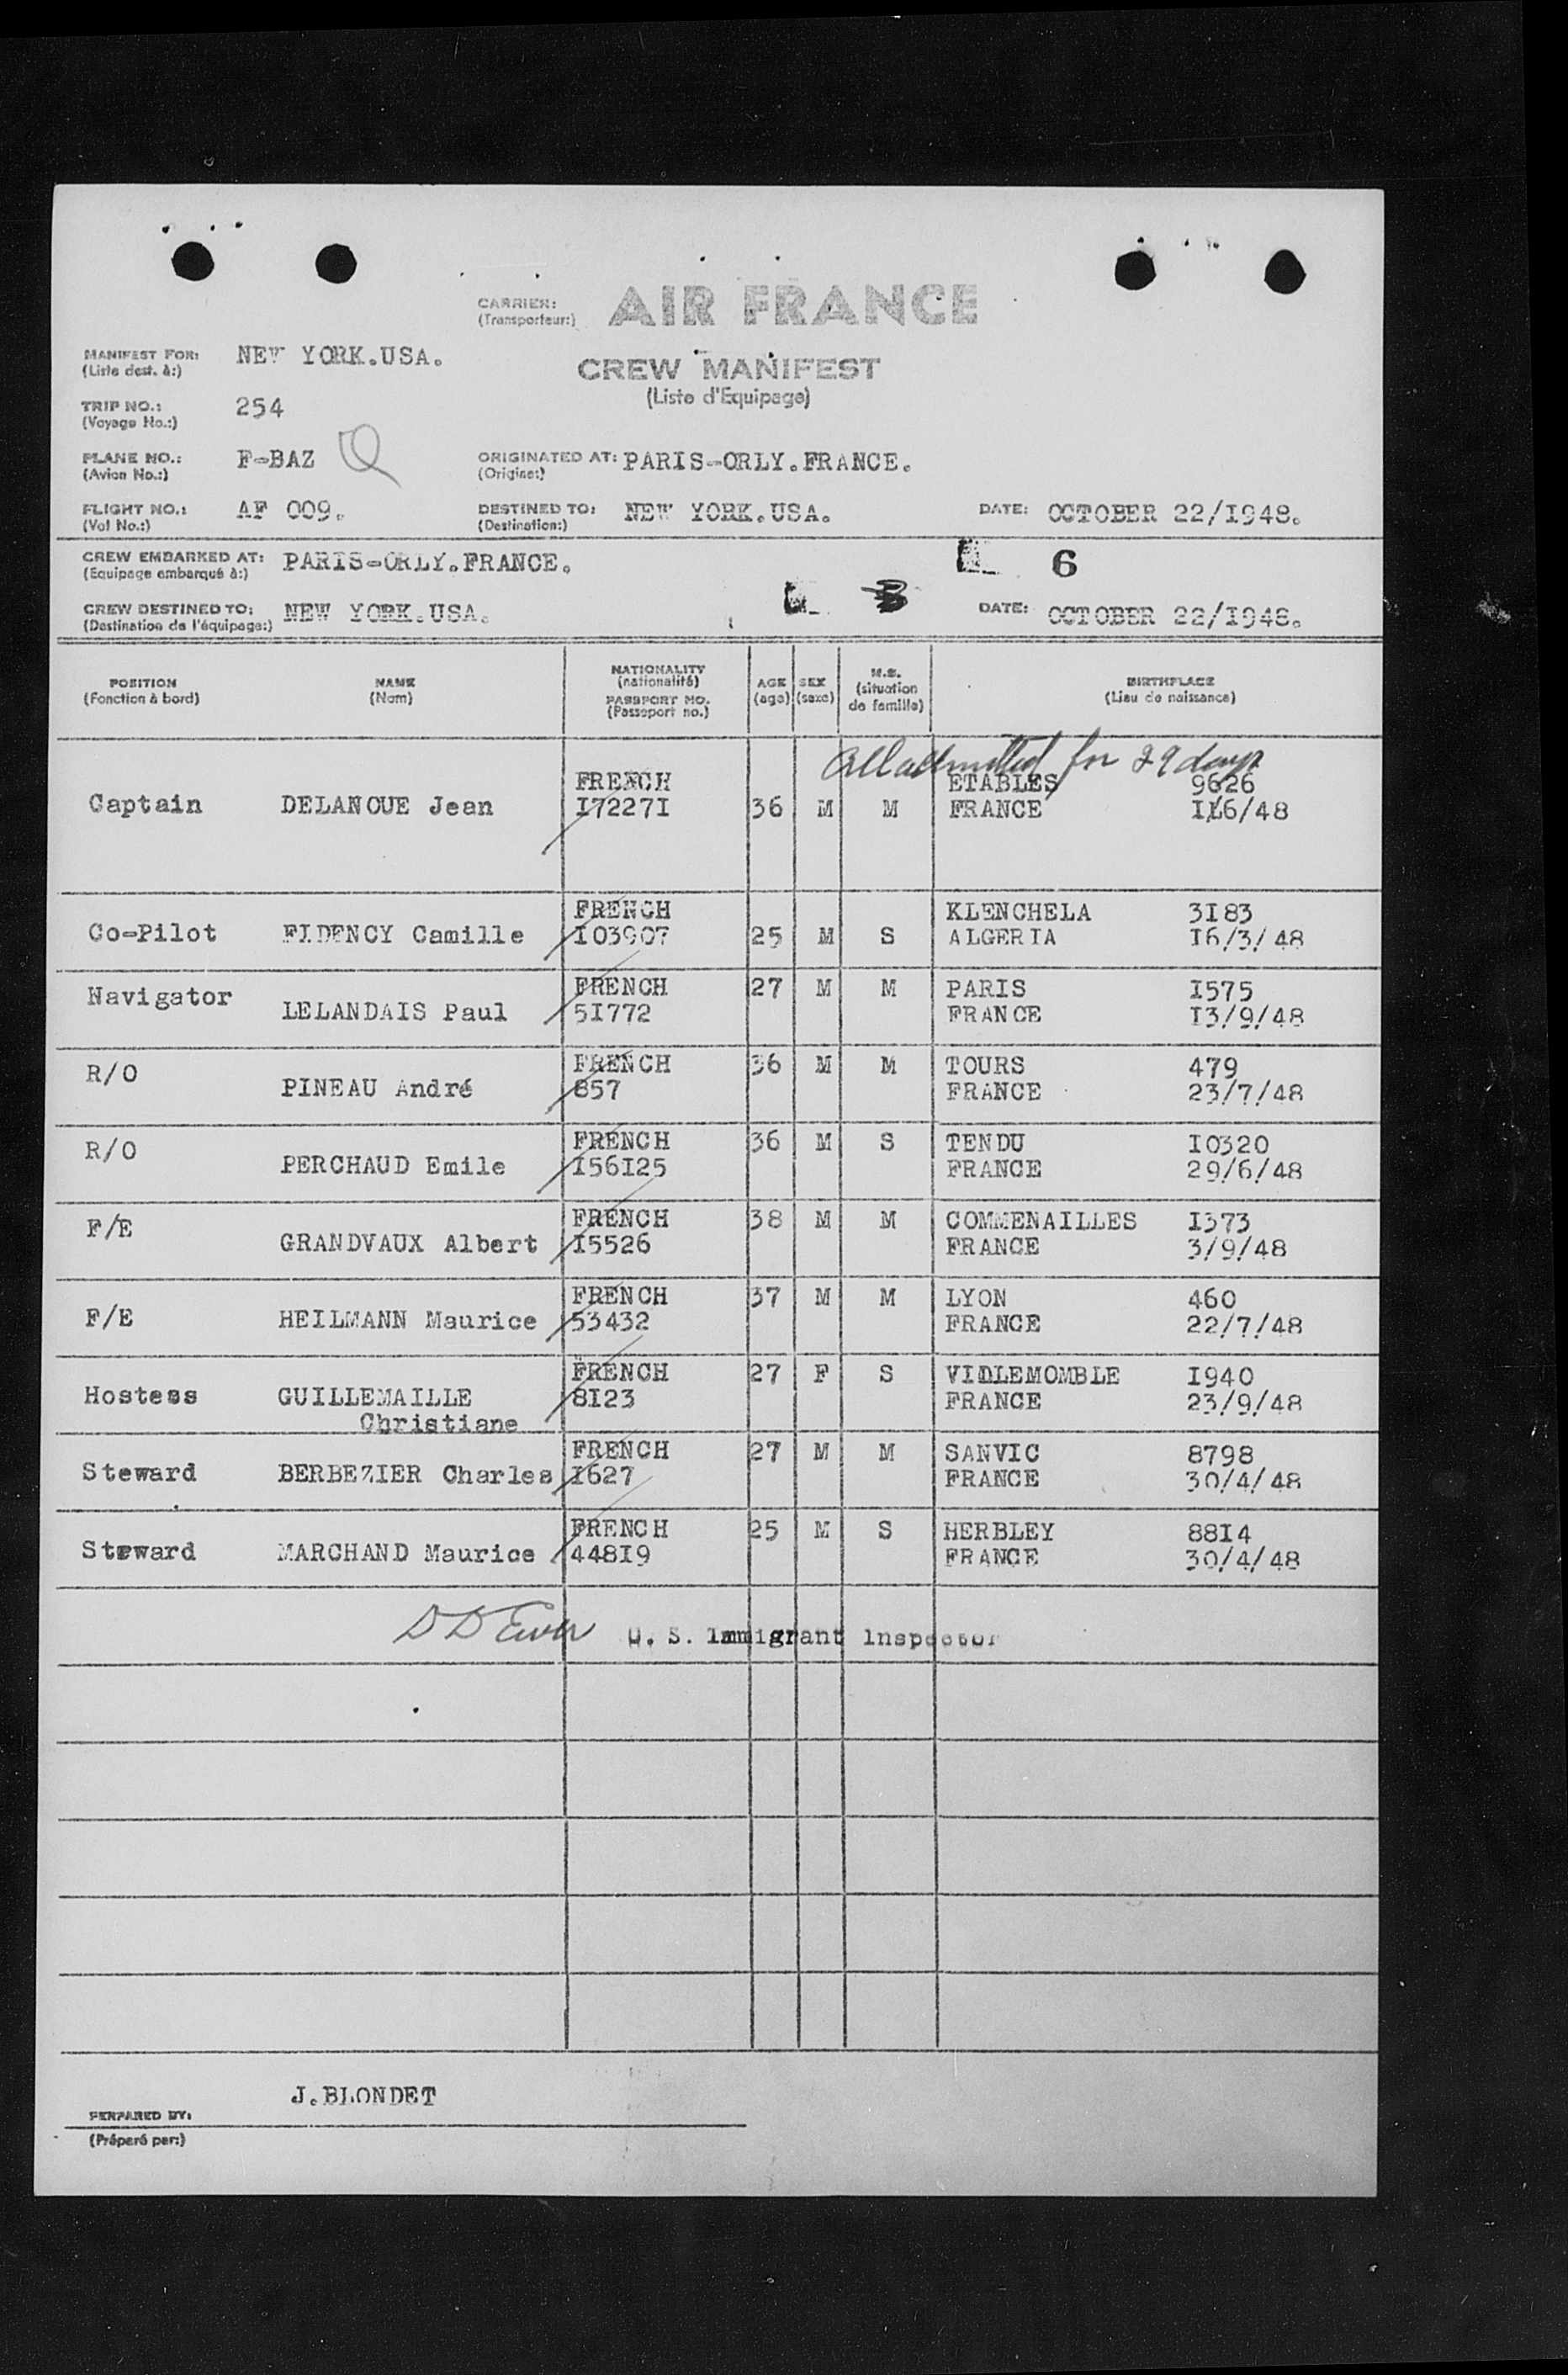 CARRIER: AIR FRANCE
(Transporteur:)
MANIFEST FOR: NEW YORK.USA.
(Liste dest. à:)
CREW MANIFEST
(Liste d'Equipage)
TRIP NO.: 254
(Voyage No.:)
PLANE NO.: F-BAZ Q
(Avion No.:)
ORIGINATED AT: PARIS-ORLY.FRANCE.
(Origine:)
FLIGHT NO.: AF 009.
(Vol No.:)
DESTINED TO: NEW YORK.USA.
(Destination:)
DATE: OCTOBER 22/I948.
CREW EMBARKED AT: PARIS-ORLY.FRANCE.
(Equipage embarqué à:)
6
CREW DESTINED TO: NEW YORK.USA.
(Destination de l'équipage:)
DATE: OCTOBER 22/I948.
POSITION
(Fonction à bord)
NAME
(Nom)
NATIONALITY
(nationalité)
PASSPORT NO.
(Passeport no.)
AGE
(age)
SEX
(sexe)
M.S.
(situation
de famille)
BIRTHPLACE
(Lieu de naissance)
All admitted for 29 days
FRENCH ETABLES 9626
Captain DELANOUE Jean I7227I 36 M M FRANCE I16/48
FRENCH KLENCHELA 3I83
Co-Pilot FIDENCY Camille I03907 25 M S ALGERIA I6/3/48
Navigator FRENCH 27 M M PARIS I575
LELANDAIS Paul 5I772 FRANCE I3/9/48
R/O FRENCH 36 M M TOURS 479
PINEAU André 857 FRANCE 23/7/48
R/O FRENCH 36 M S TENDU I0320
PERCHAUD Emile I56I25 FRANCE 29/6/48
F/E FRENCH 38 M M COMMENAILLES I373
GRANDVAUX Albert I5526 FRANCE 3/9/48
FRENCH 37 M M LYON 460
F/E HEILMANN Maurice 53432 FRANCE 22/7/48
FRENCH 27 F S VIDLEMOMBLE I940
Hostess GUILLEMAILLE 8I23 FRANCE 23/9/48
Christiane
FRENCH 27 M M SANVIC 8798
Steward BERBEZIER Charles I627 FRANCE 30/4/48
FRENCH 25 M S HERBLEY 88I4
Steward MARCHAND Maurice 448I9 FRANCE 30/4/48
U. S. Immigrant Inspector
J.BLONDET
PERPARED BY:
(Préparé par:)